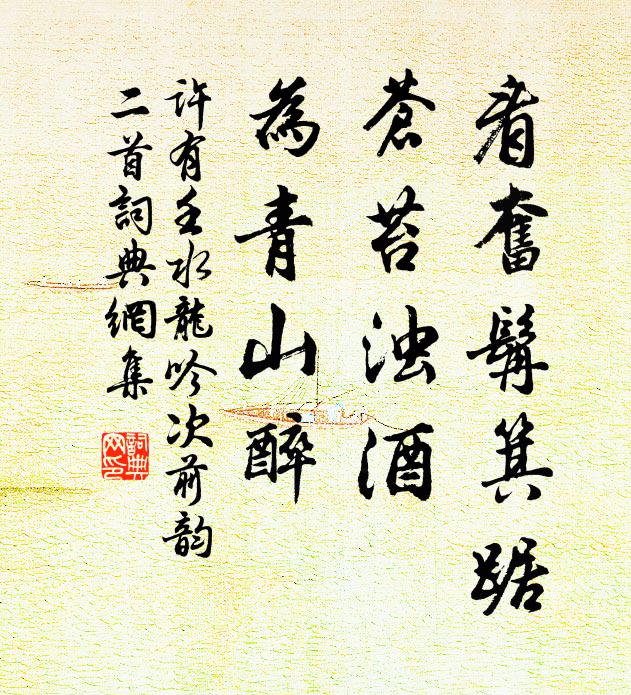 看奮髯箕踞
蒼苔浊酒
為青山醉
许有壬水龍吟次前韵
二首詞典網集
詞典
网印